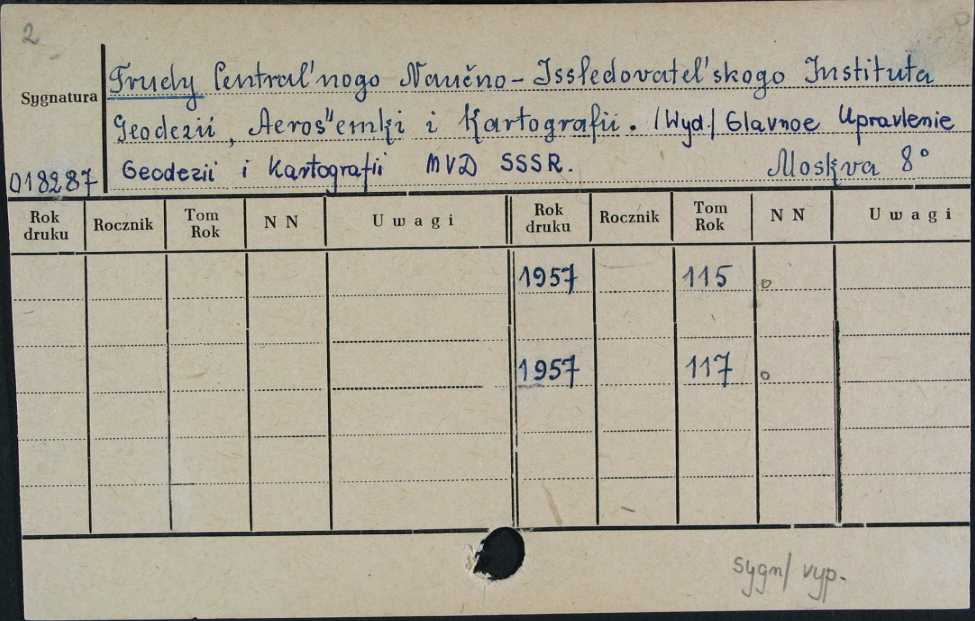 2
Sygnatura
Trudy Central'nogo Naučno-Issledovatel'skogo Instituta
Geodezii, Aeros"emki i Kartografii. /Wyd./ Glavnoe Upravlenie
018287 Geodezii i Kartografii MVD SSSR. Moskva 8°
Rok druku Rocznik Tom Rok N N Uwagi Rok druku Rocznik Tom Rok N N Uwagi
1957 115 o
1957 117 o
sygn/ vyp.